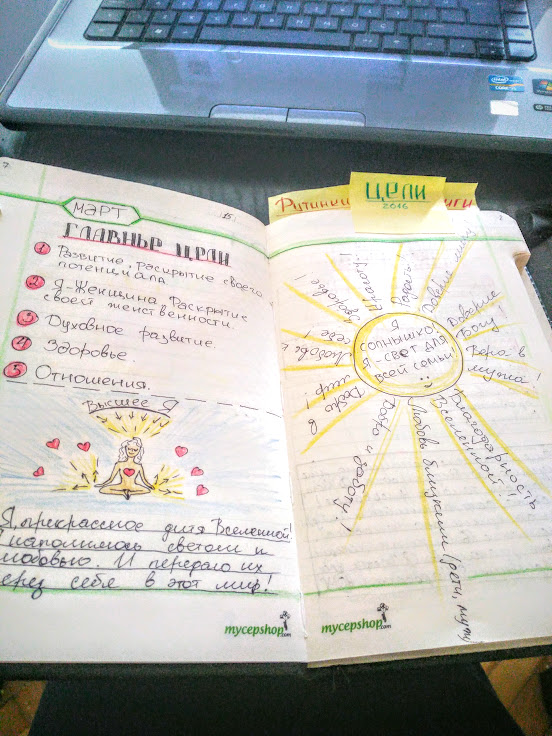 МАРТ
ГЛАВНЫЕ ЦЕЛИ
1 Развитие, раскрытие своего
потенциала
2 Я-Женщина. Раскрытие
своей женственности.
3 Духовное развитие
4 Здоровье.
5 Отношения.
Высшее Я
Я, прекрасное дитя Вселенной!
наполняюсь светом и
любовью. И передаю их
через себя в этот мир!
mycepshop
.com
ЦЕЛИ
2016
Я
СОЛНЫШКО!
Я-СВЕТ ДЛЯ
ВСЕЙ СЕМЬИ
Дарить
Доверие
Богу!
Вера в
мужа!
Благодарность
Вселенной!
Любовь близким (дети, муж
Добро и
заботу!
Добро в
мир!
Любовь к
себе!
Здоровье!
mycepshop
.com
intel
CORE i5